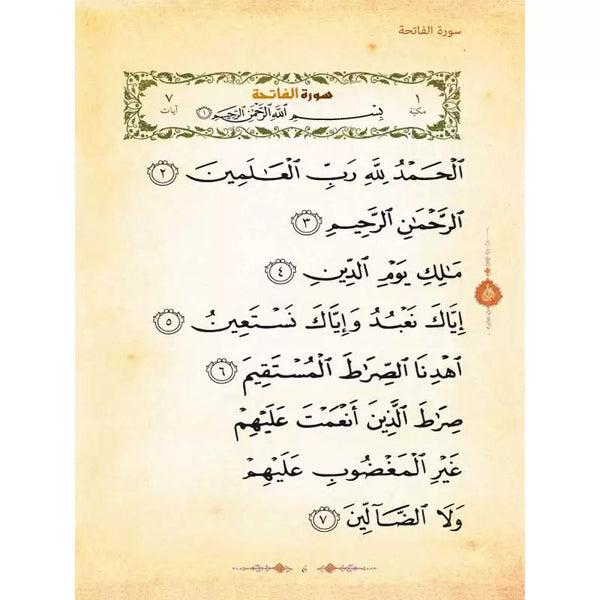 سورة الفاتحة
سورة الفاتحة
١ مكية
٧ آيات
بِسْمِ اللَّهِ الرَّحْمَٰنِ الرَّحِيمِ ١
ٱلْحَمْدُ لِلَّهِ رَبِّ ٱلْعَـٰلَمِينَ ٢
ٱلرَّحْمَـٰنِ ٱلرَّحِيمِ ٣
مَـٰلِكِ يَوْمِ ٱلدِّينِ ٤
إِيَّاكَ نَعْبُدُ وَإِيَّاكَ نَسْتَعِينُ ٥
ٱهْدِنَا ٱلصِّرَٰطَ ٱلْمُسْتَقِيمَ ٦
صِرَٰطَ ٱلَّذِينَ أَنْعَمْتَ عَلَيْهِمْ
غَيْرِ ٱلْمَغْضُوبِ عَلَيْهِمْ
وَلَا ٱلضَّآلِّينَ ٧
6